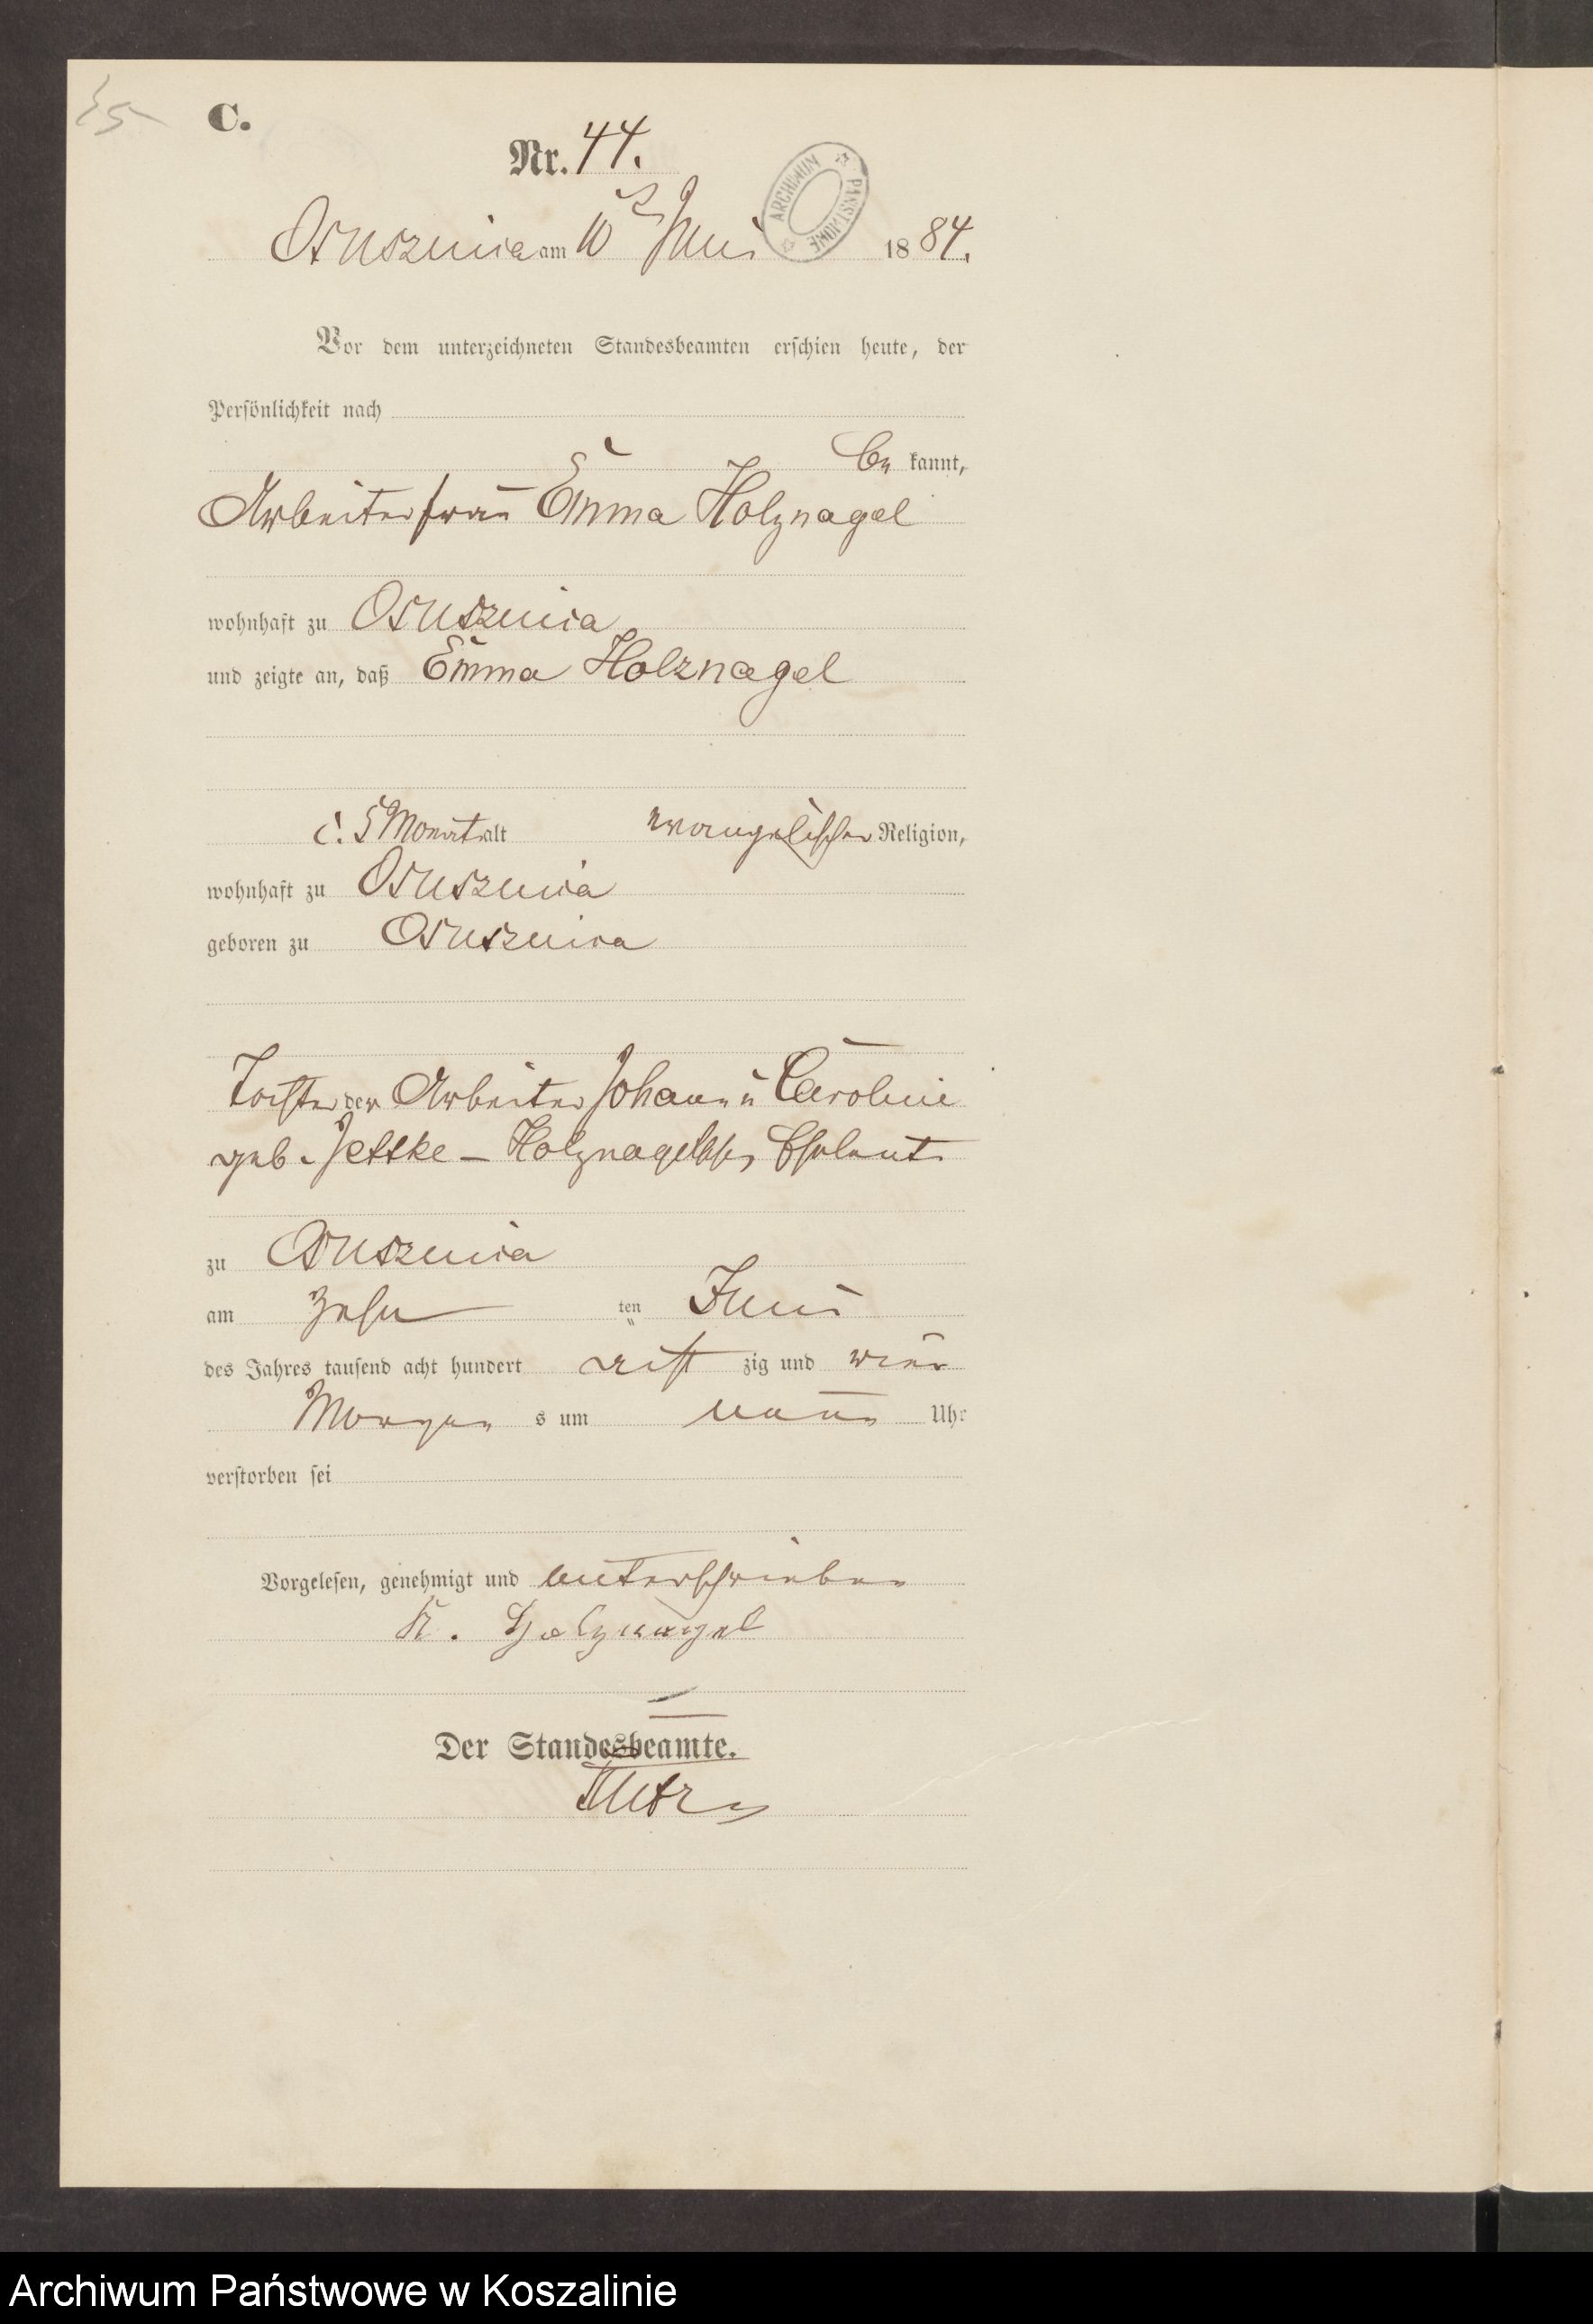 35
C.
Nr. 44.
Ossusznica am 10 Juni 1884.
ARCHIWUM PAŃSTWOWE
Vor dem unterzeichneten Standesbeamten erschien heute, der
Persönlichkeit nach
be kannt,
Arbeiterfrau Emma Holznagel
wohnhaft zu Ossusznica
und zeigte an, daß Emma Holznagel
5 Monat alt evangelischer Religion,
wohnhaft zu Ossusznica
geboren zu Ossusznica
Tochter der Arbeiter Johann u Caroline
geb. Jettke – Holznagelschen Eheleute
zu Ossusznica
am zehn ten Juni
des Jahres tausend acht hundert acht zig und vier
Morgen s um neun Uhr
verstorben sei
Vorgelesen, genehmigt und unterschrieben
Holznagel
Der Standesbeamte.
Archiwum Państwowe w Koszalinie